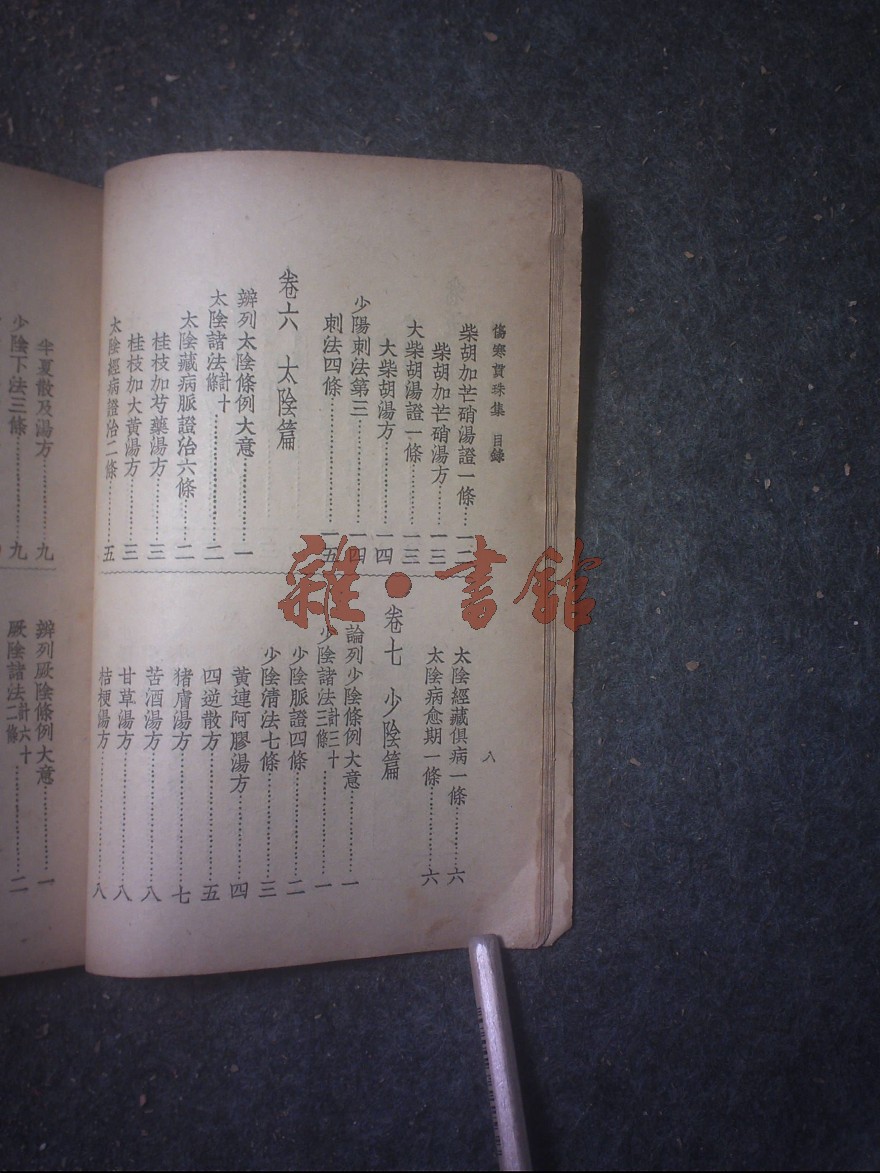 傷寒貫珠集　目錄
八
柴胡加芒硝湯證一條…一二
柴胡加芒硝湯方………一三
大柴胡湯證一條………一三
大柴胡湯方…………一四
少陽刺法第三…………一四
刺法四條……………一五
卷六　太陰篇
辨列太陰條例大意………一
太陰諸法計十條…………二
太陰藏病脈證治六條……二
桂枝加芍藥湯方…………三
桂枝加大黃湯方…………三
太陰經病證治二條………五
太陰經藏俱病一條………六
太陰病愈期一條…………六
卷七　少陰篇
論列少陰條例大意………一
少陰諸法計三十三條……一
少陰脈證四條……………二
少陰清法七條……………三
黃連阿膠湯方……………四
四逆散方…………………五
猪膚湯方…………………七
苦酒湯方…………………八
甘草湯方…………………八
桔梗湯方…………………八
半夏散及湯方……………九
少陰下法三條……………九
辨列厥陰條例大意………一
厥陰諸法計六十二條……二
雜·書館